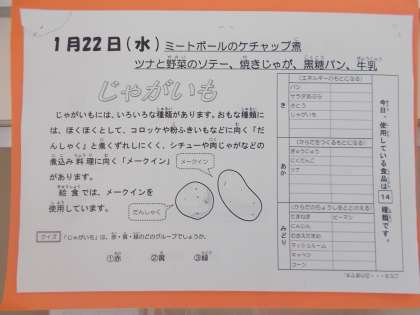 1月22日(水) ミートボールのケチャップ煮
ツナと野菜のソテー、焼きじゃが、黒糖パン、牛乳
じゃがいも
じゃがいもには、いろいろな種類があります。おもな種類に
は、ほくほくとして、コロッケや粉ふきいもなどに向く「だ
んしゃく」と煮くずれしにくく、シチューや肉じゃがなどの
煮込み料理に向く「メークイン」
があります。
給食では、メークインを
使用しています。
メークイン
だんしゃく
クイズ 「じゃがいも」は、赤・黄・緑のどのグループでしょうか。
①赤 ②黄 ③緑
き
(エネルギーのもとになる)
パン
サラダあぶら
さとう
じゃがいも
あか
(からだをつくるもとになる)
ぎゅうにゅう
にくだんご
ツナ
みどり
(からだのちょうしをととのえる)
たまねぎ ピーマン
にんじん
マッシュルーム
キャベツ
コーン
今日、使用している食品は
14
種類です。